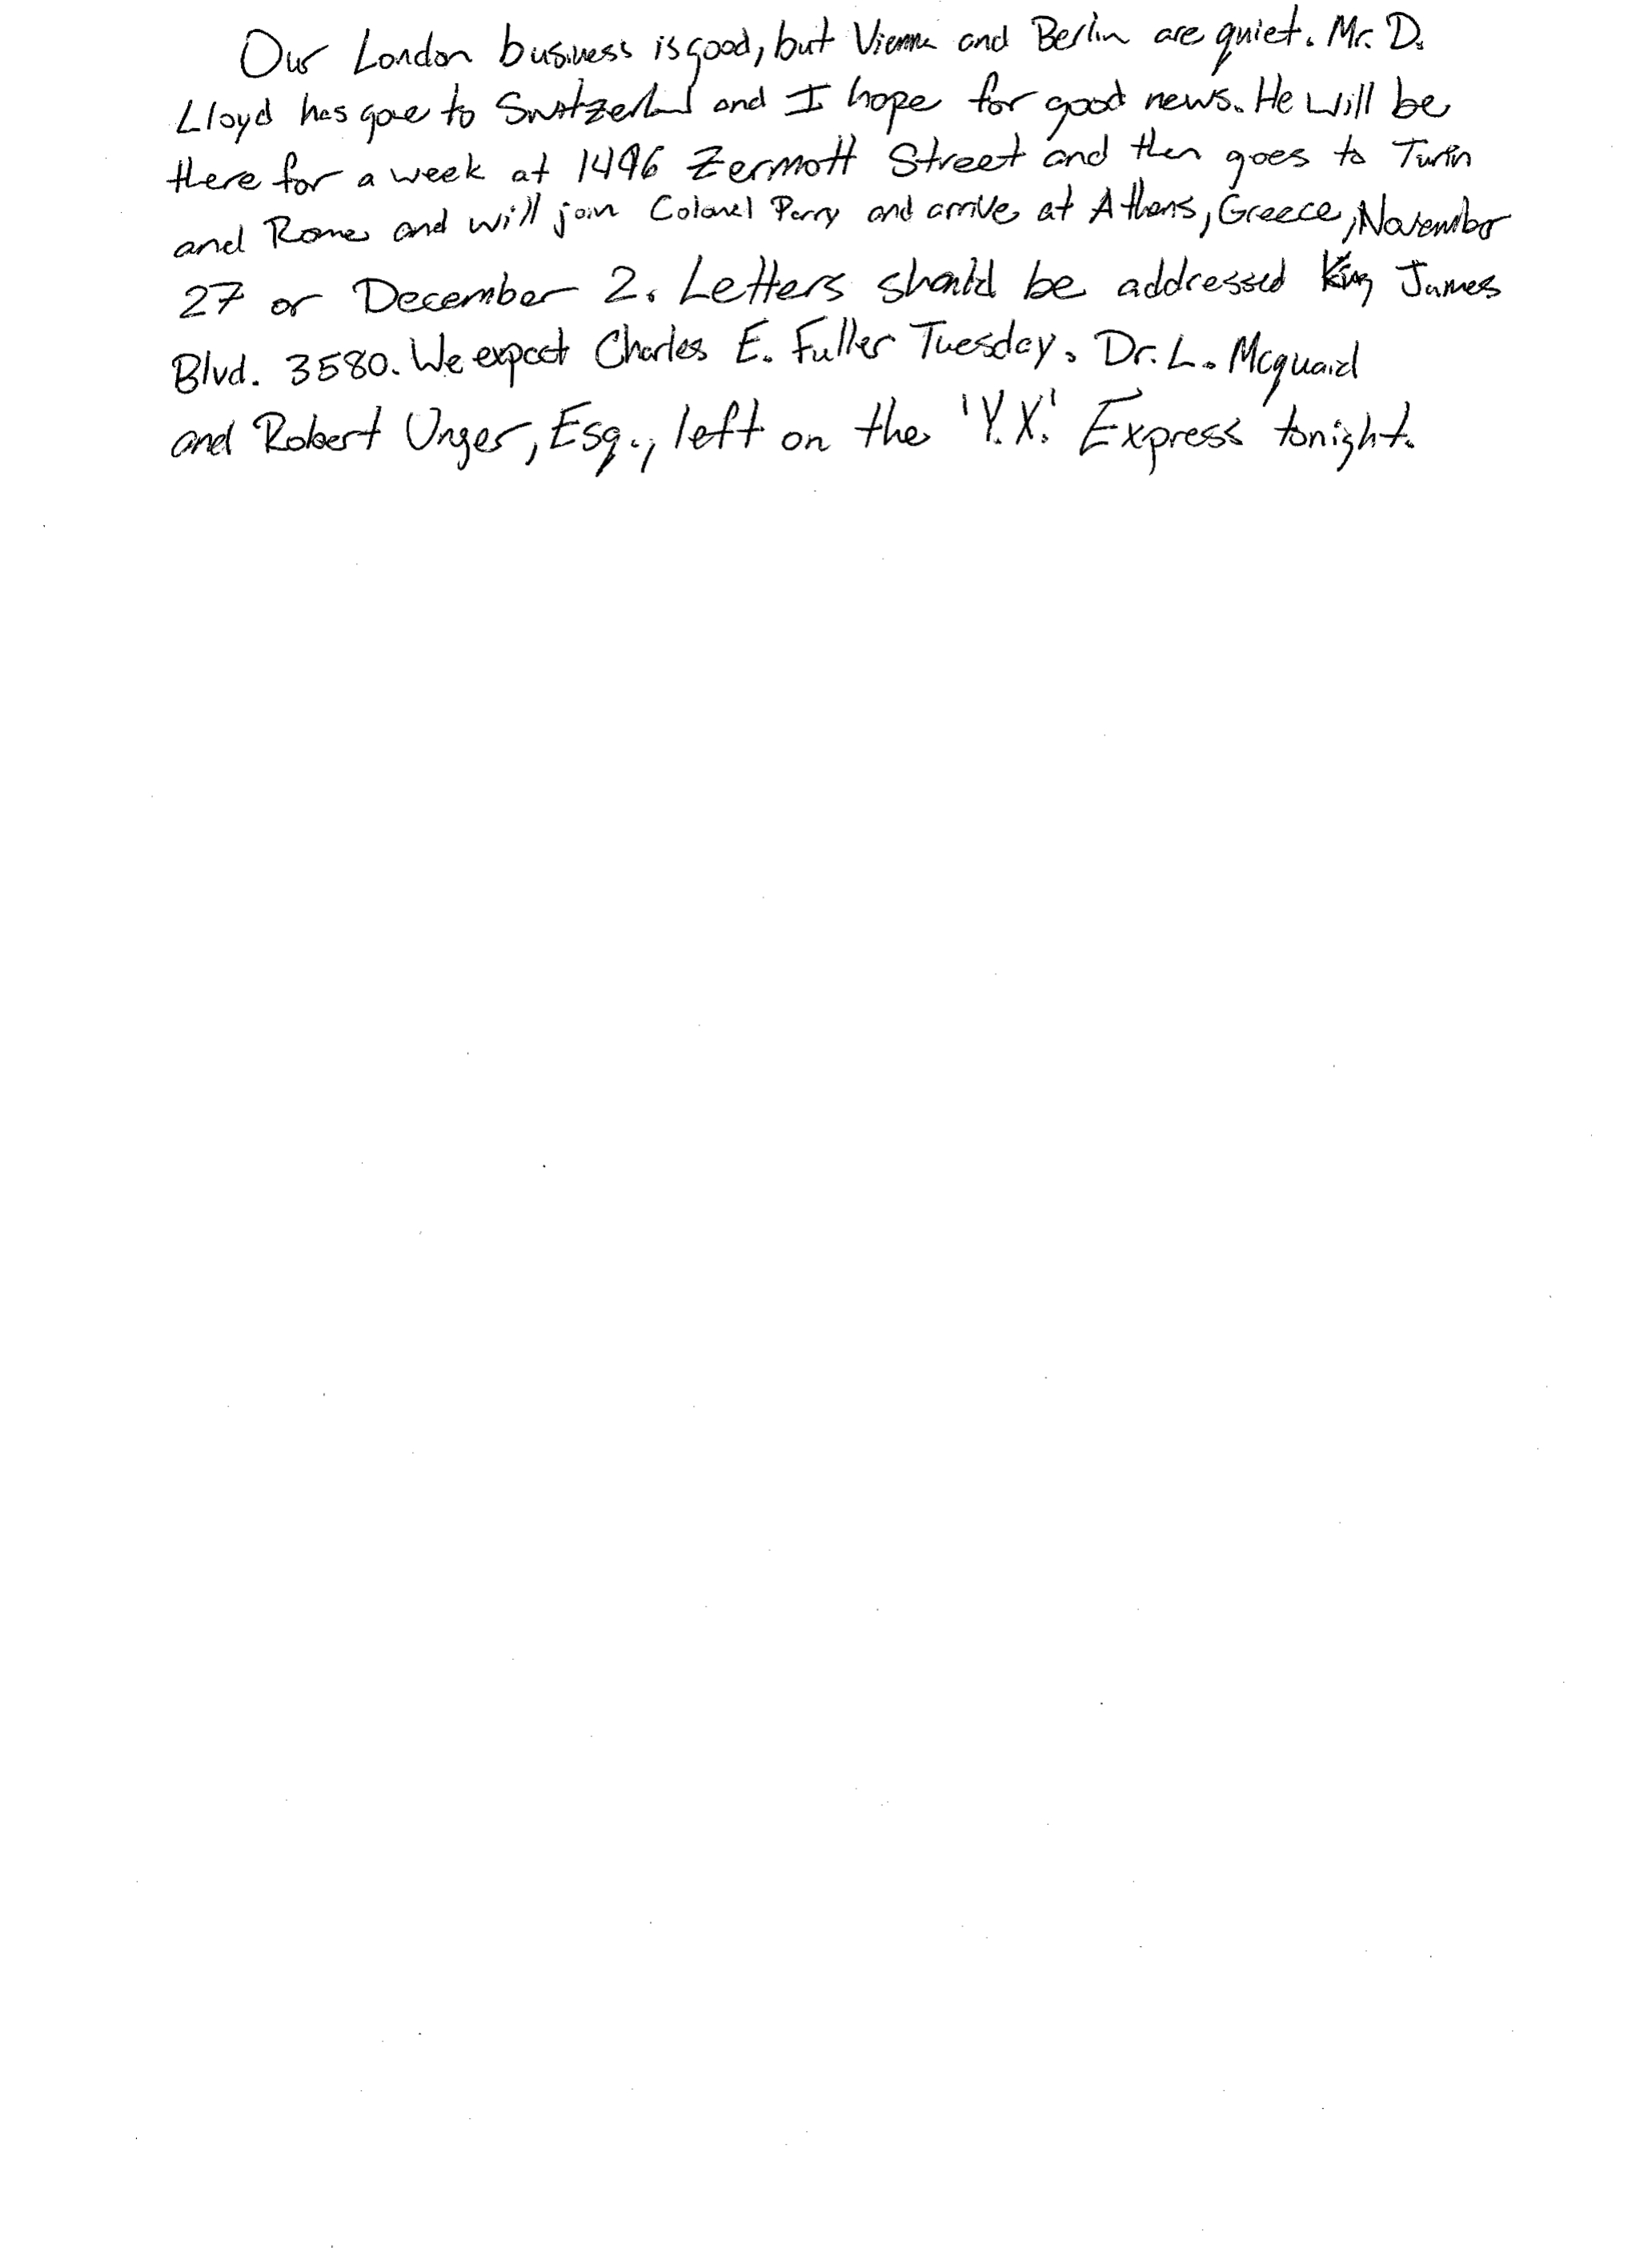 Our London business is good, but Vienna and Berlin are quiet. Mr. D.
Lloyd has gone to Switzerland and I hope for good news. He will be
there for a week at 1496 Zermott Street and then goes to Turin
and Rome and will join Colonel Parry and arrive at Athens, Greece, November
27 or December 2. Letters should be addressed King James
Blvd. 3580. We expect Charles E. Fuller Tuesday. Dr. L. Mcquaid
and Robert Unger, Esq., left on the 'Y.X.' Express tonight.